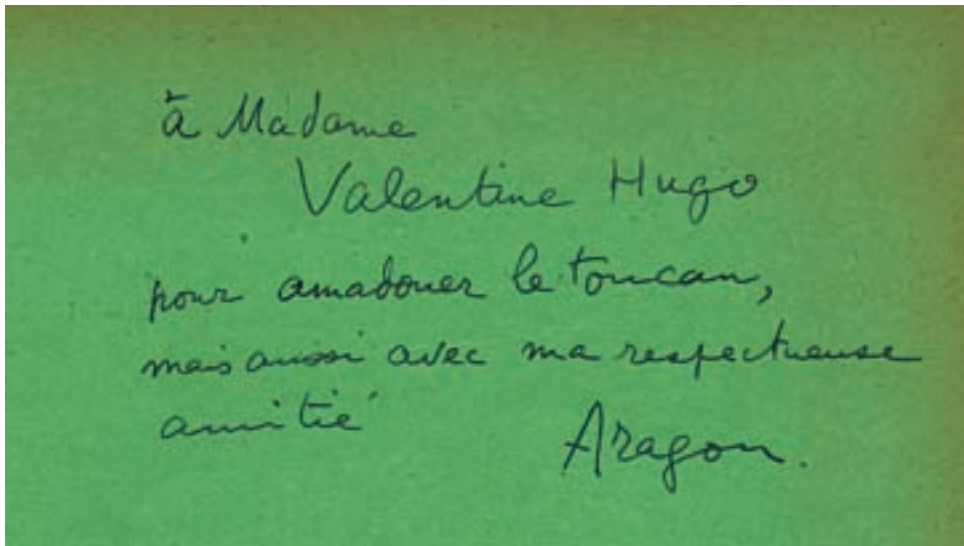 à Madame
Valentine Hugo
pour amadouer le toucan,
mais aussi avec ma respectueuse
amitié
Aragon.